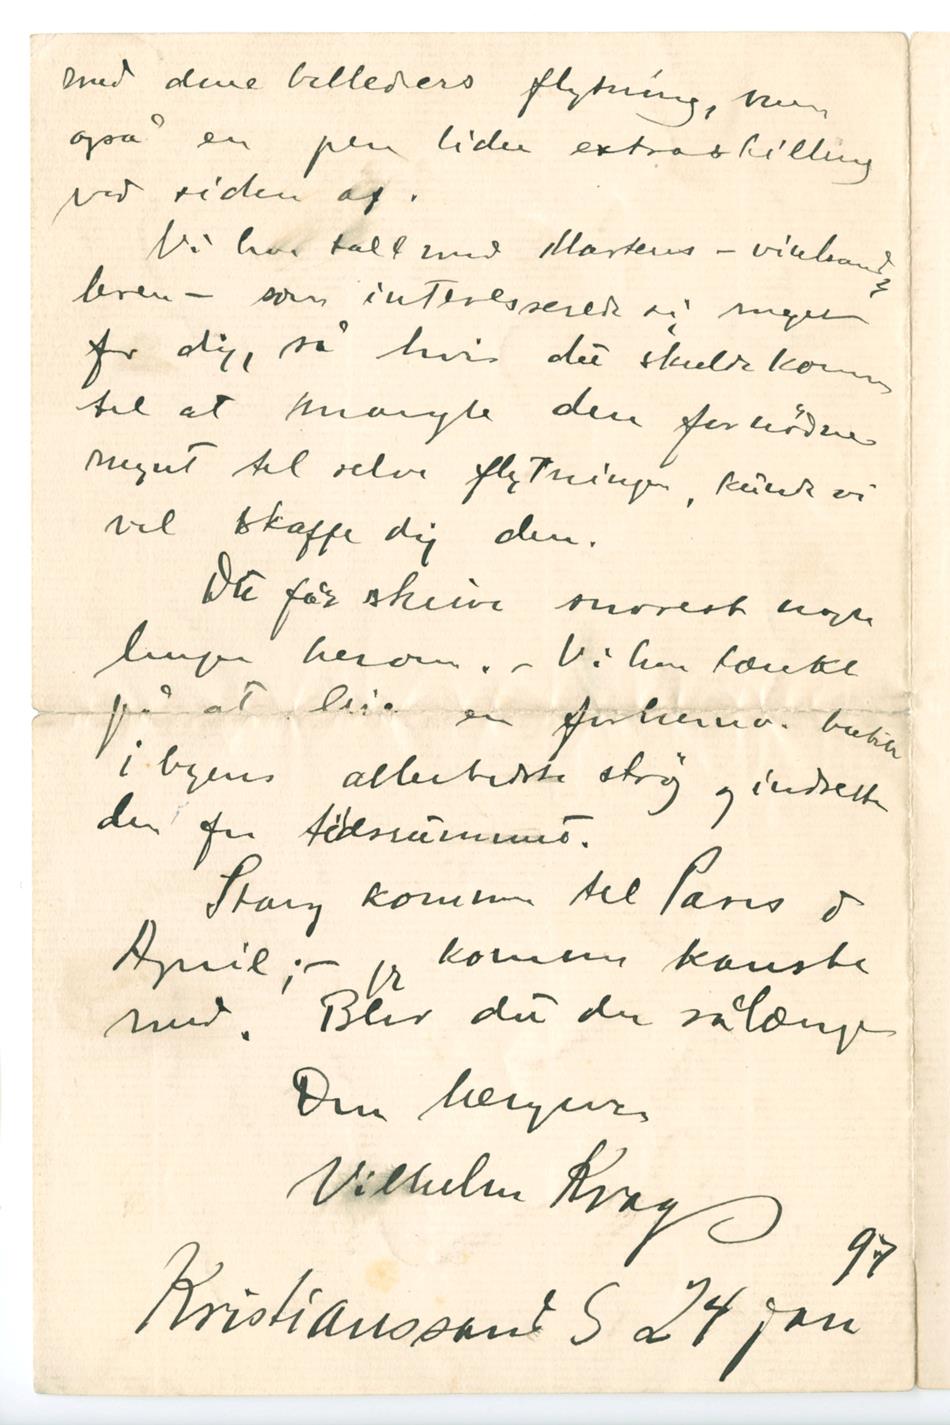 med dine billeders flytning, men
også en pen liden extraskilling
ved siden af.
Vi har talt med Martens – vinhand-
leren – som interesserede sig meget
for dig, så hvis du skulde komme
til at mangle den fornödne
mynt til selve flytningen, kunde vi
vel skaffe dig den.
Du får skrive snarest nogle
linjer herom. – Vi har tænkt
på at leie en butik
i byens allerbedste strög og indrette
den for tidsrummet.
Stang kommer til Paris
April; – jeg kommer kanske
med. Bliv du der sålænge
Din hengivne
Vilhelm Krag
97
Kristianssand S 24 jan